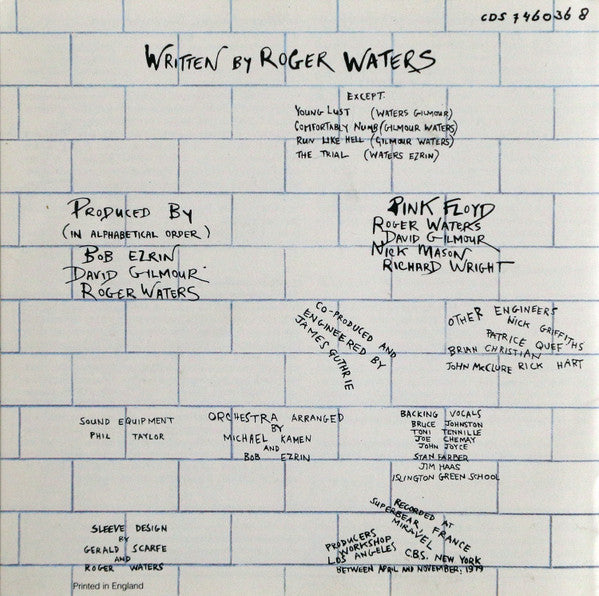 CDS 7 46036 8
WRITTEN BY ROGER WATERS
EXCEPT.
YOUNG LUST (WATERS GILMOUR)
COMFORTABLY NUMB (GILMOUR WATERS)
RUN LIKE HELL (GILMOUR WATERS)
THE TRIAL (WATERS EZRIN)
PRODUCED BY
(IN ALPHABETICAL ORDER)
BOB EZRIN
DAVID GILMOUR
ROGER WATERS
PINK FLOYD
ROGER WATERS
DAVID GILMOUR
NICK MASON
RICHARD WRIGHT
CO-PRODUCED AND
ENGINEERED BY
JAMES GUTHRIE
OTHER ENGINEERS
NICK GRIFFITHS
PATRICE QUEF
BRIAN CHRISTIAN
JOHN McCLURE RICK HART
SOUND EQUIPMENT
PHIL TAYLOR
ORCHESTRA ARRANGED
BY
MICHAEL KAMEN
AND
BOB EZRIN
BACKING VOCALS
BRUCE JOHNSTON
TONI TENNILLE
JOE CHEMAY
JOHN JOYCE
STAN FARBER
JIM HAAS
ISLINGTON GREEN SCHOOL
SLEEVE DESIGN
BY
GERALD SCARFE
AND
ROGER WATERS
RECORDED AT
SUPERBEAR, FRANCE
MIRAVEL
PRODUCERS
WORKSHOP
LOS ANGELES CBS. NEW YORK
BETWEEN APRIL AND NOVEMBER, 1979
Printed in England